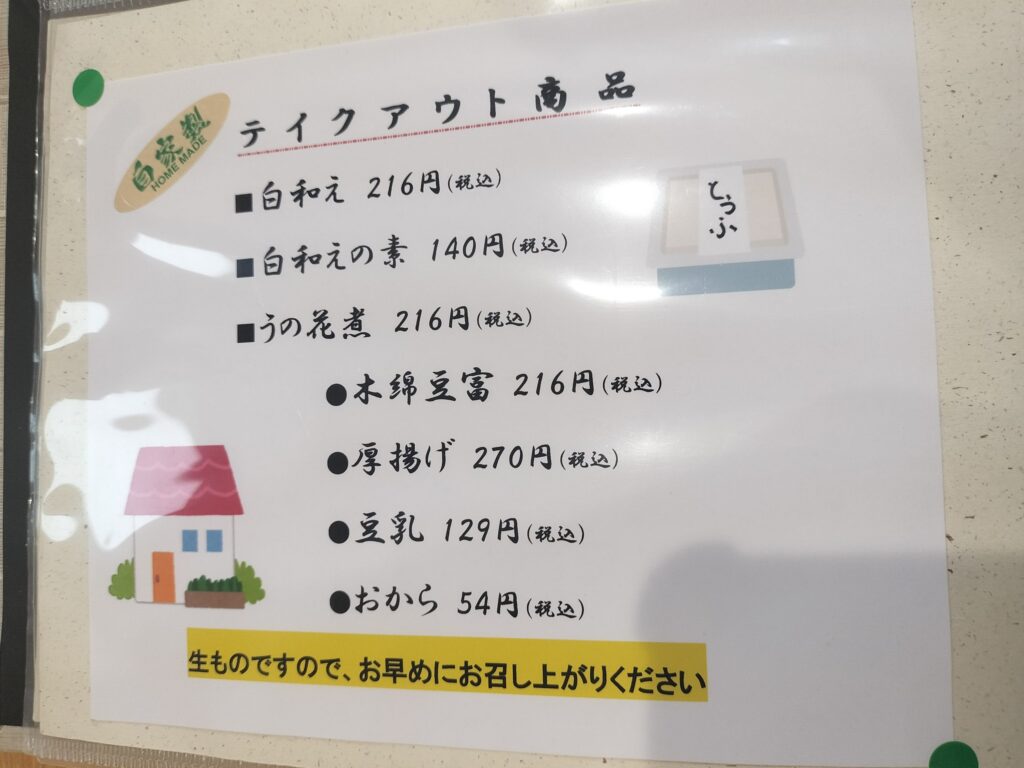 自家製
HOME MADE
テイクアウト商品
■白和え 216円(税込)
■白和えの素 140円(税込)
■うの花煮 216円(税込)
●木綿豆富 216円(税込)
●厚揚げ 270円(税込)
●豆乳 129円(税込)
●おから 54円(税込)
とうふ
生ものですので、お早めにお召し上がりください